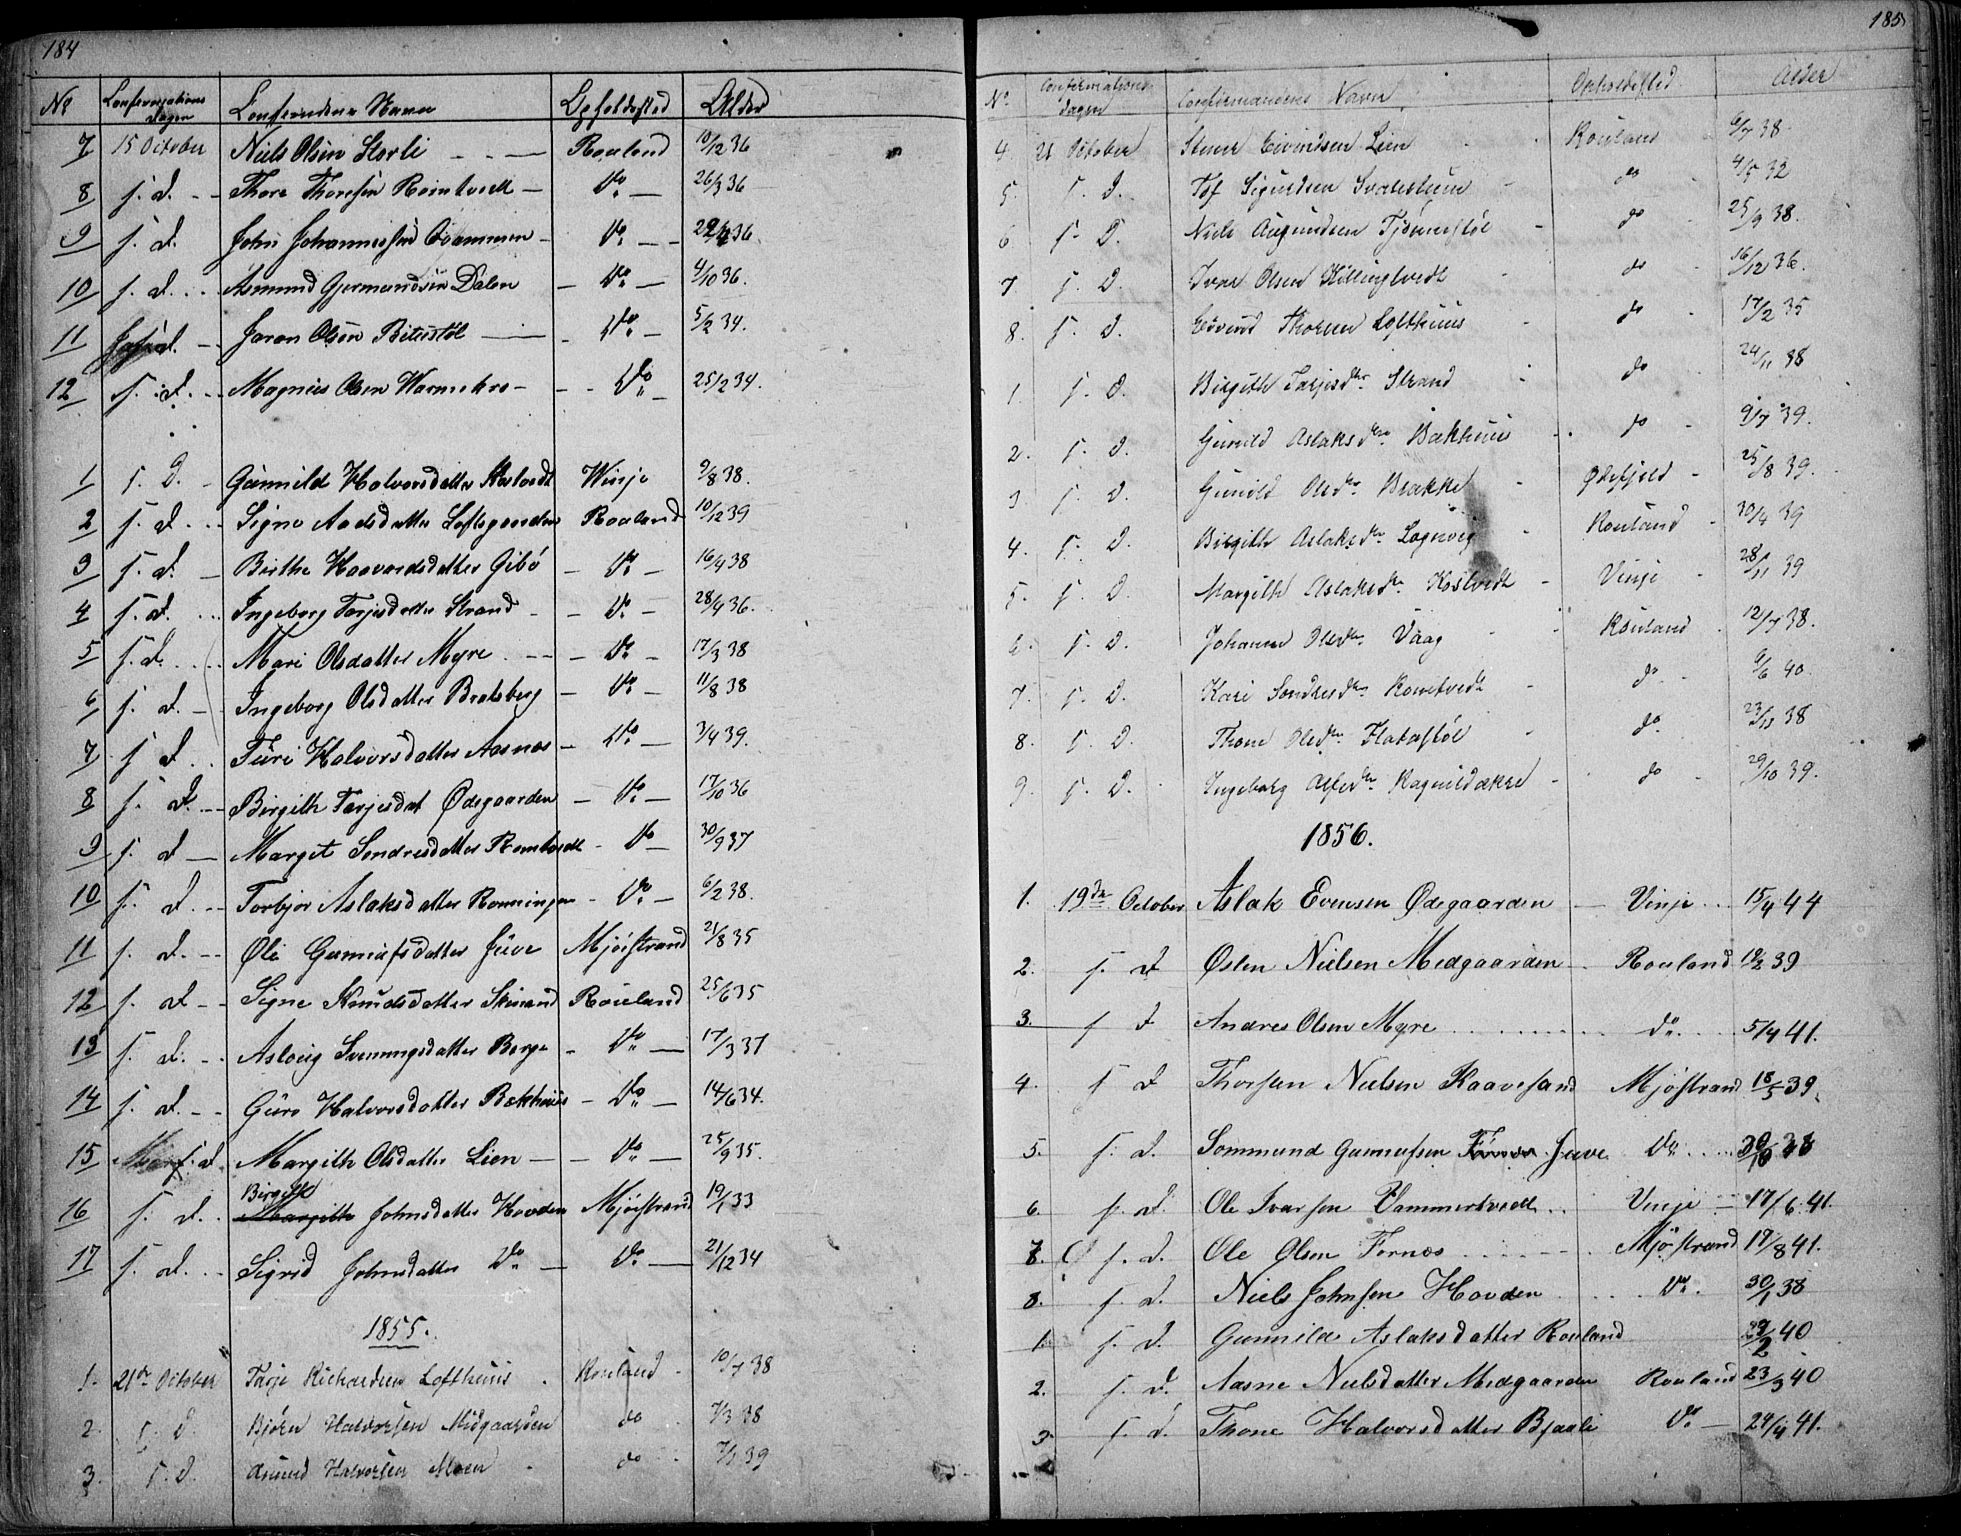 184
No Confirmations dagen Confirmandens Navn Opholdssted Alder
7 15 October Niels Olsen Storli Rouland 10/12 36
8 s. d. Thore Thoresen Romtvedt Do 26/3 36
9 s. d. John Johannessen Do 36
10 s. d. Asmund Gjermundsen Dalen Do 4/10 36.
11 s. d. Jøran Olsen Biterstøl Do 5/2 34.
12 s. d. Magnus Olsen Do 25/2 34.
1 s. D. Gunnild Halvorsdatter Winje 9/8 38.
2 s. d. Signe Aadsdatter Loftsgaarden Rouland 10/12 39
3 s. d. Birthe Haavardsdatter Gibø Do 16/4 38
4 s. d. Ingeborg Tarjesdatter Strand Do 28/4 36.
5 s. d. Mari Olsdatter Myre Do 17/3 38
6 s. d. Ingeborg Olsdatter Bratsberg Do 11/8 38
7 s. d. Turi Halvorsdatter Aasnes Do 3/4 39.
8 s. d. Birgith Tarjesdat Ødegaarden Do 17/10 36
9 s. d. Margit Sondresdatter Romtvedt Do 30/9 37
10 s. d. Torbjør Aslaksdatter Rønningen Do 6/2 38.
11 s. d. Øli Gunnufsdatter Juve Mjøsstrand 21/8 35
12 s. d. Signe Knudsdatter Skinand Rouland 25/6 35
13 s. d. Asloug Svenungsdatter Berge Do 17/3 37
14 s. d. Guro Halvorsdatter Bækhuus Do 14/6 34.
15 s. d. Margith Olsdatter Lien Do 25/9 35.
Birgith
16 s. d. Margith Johnsdatter Hovden Mjøsstrand 19/1 33
17 s. d. Sigrid Johnsdatter Do Do 21/12 34
1855.
1. 21de October Tarje Richardsen Lofthuus Rouland 10/7 38
2. s. D. Bjørn Halvorsen Midgaarden do 7/3 38
3. s. D. Asmund Halvorsen Moen do 39
185
No Confirmations dagen Confirmandens Navn Opholdssted Alder
4. 21 October Stener Eivindsen Lien Rouland 6/7 38
5. s. D. Tof Sigurdsen do 4/5 32
6 s. D. Niels Augundsen do 25/9 38.
7 s. D. Ivar Olsen Killingtvedt do 16/12 36.
8. s. D. Eivind Thorsen Lofthuus do 17/2 35
1 s. D. Birgith Tarjesdtr Strand do 24/11 38
2. s. D. Gunild Aslaksdtr Bækhuus do 9/7 39.
3 s. D. Gunild Olsdtr Brække Øifjeld 25/8 39.
4. s. D. Birgith Aslaksdtr Lognvig Rouland 30/4 39
5. s. D. Margith Aslaksdtr Kostvedt Vinje 28/11 39
6. s. D. Johanne Olsdtr Vaag Rouland 12/7 38.
7. s. D. Kari Sondresdtr Romtvedt do 6/6 40.
8. s. D. Thone Olsdtr Flatastøl do 23/11 38
9. s. D. Ingeborg Olsdtr do 29/10 39.
1856.
1. 19de October Aslak Evensen Ødegaarden Vinje 15/4 44
2. s. d Østen Nielsen Medgaarden Rouland 19/2 39
3. s d Andres Olsen Myre do 5/4 41.
4. s d Thorsten Nielsen Raavesand Mjøsstrand 18/5 39.
5. s. d. Sommund Gunnufsen Fornæs Juve Do
6. s. d. Ole Ivarsen Vammertvedt Vinje 17/6. 41.
7. s. d. Ole Olsen Fornæs Mjøsstrand 17/8 41.
8. s. d. Niels Johnsen Hovden Do 30/1 38
1. s. d. Gunnild Aslaksdatter Rouland 40
2. s. d. Aasne Nielsdatter Medgaarden Rouland 23/3 40
3 s. d. Thone Halvorsdatter Bjaali Do 24/4 41.